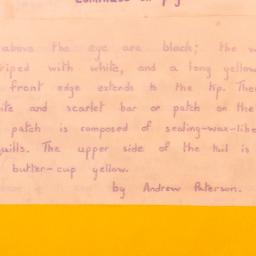 above the eye are black; the w
riped with white, and a long yellow
front edge extends to the tip. The
ite and scarlet bar or patch on the
patch is composed of sealing-wax-like
uills. The upper side of the tail is
butter-cup yellow.
by Andrew Paterson.